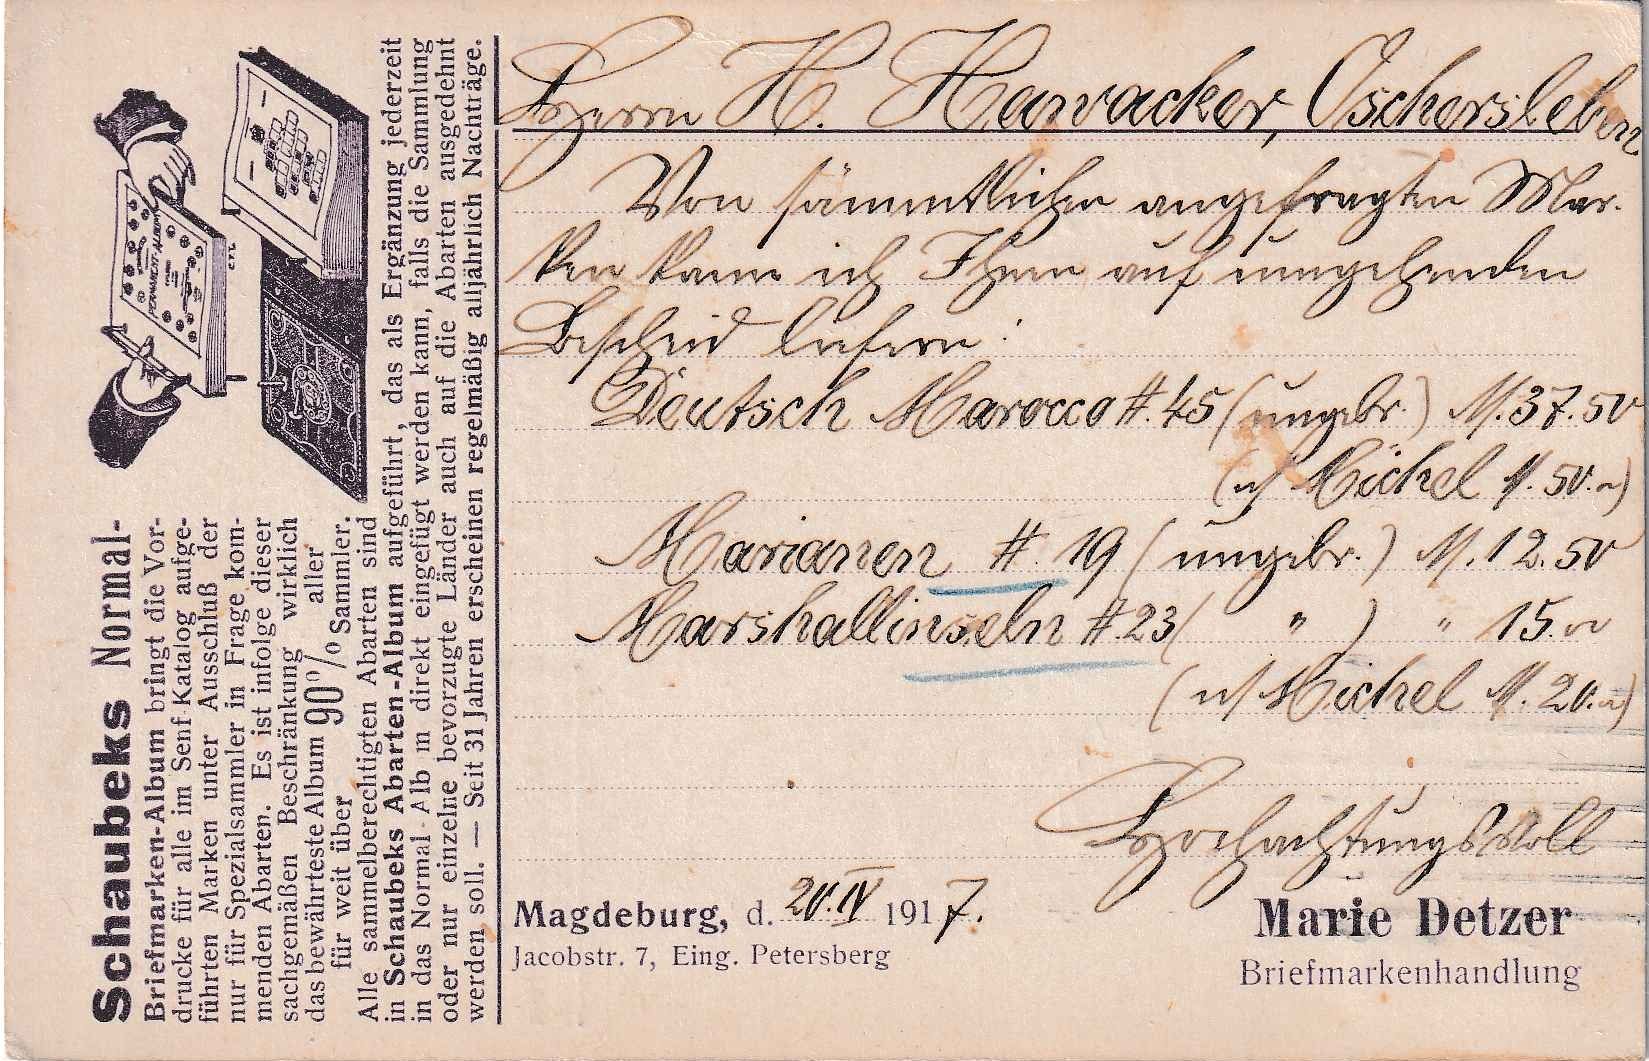 Schaubeks Normal-
Briefmarken-Album bringt die Vor-
drucke für alle im Senf-Katalog aufge-
führten Marken unter Ausschluß der
nur für Spezialsammler in Frage kom-
menden Abarten. Es ist infolge dieser
sachgemäßen Beschränkung wirklich
das bewährteste Album aller
für weit über 90% Sammler.
Alle sammelberechtigten Abarten sind
in Schaubeks Abarten-Album aufgeführt, das als Ergänzung jederzeit
in das Normal-Alb m direkt eingefügt werden kann, falls die Sammlung
oder nur einzelne bevorzugte Länder auch auf die Abarten ausgedehnt
werden soll. — Seit 31 Jahren erscheinen regelmäßig alljährlich Nachträge.
PERMANENT-ALBUM
Herrn H. Hawacker, Oschersleben
Von sämmtlichen angefragten Mar-
ken kann ich Ihnen auf umgehenden
Bescheid liefern:
Deutsch Marocco #. 45 (ungebr.) M. 37.50
(n/ Michel M. 50.-)
Marianen # 19 (ungebr.) M. 12.50
Marshallinseln #. 23 ( " ) " 15.-
(n/ Michel M. 20.-)
Hochachtungsvoll
Magdeburg, d. 20.IV 1917.
Jacobstr. 7, Eing. Petersberg
Marie Detzer
Briefmarkenhandlung